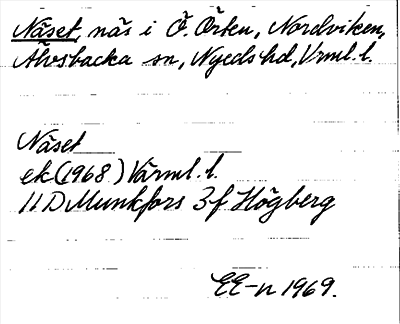 Näset, näs i Ö. Örten, Nordviken,
Älvsbacka sn, Nyeds hd, Vrml. l.
Näset
ek (1968) Värml. l.
11 D Munkfors 3 f Högberg
EE-n 1969.